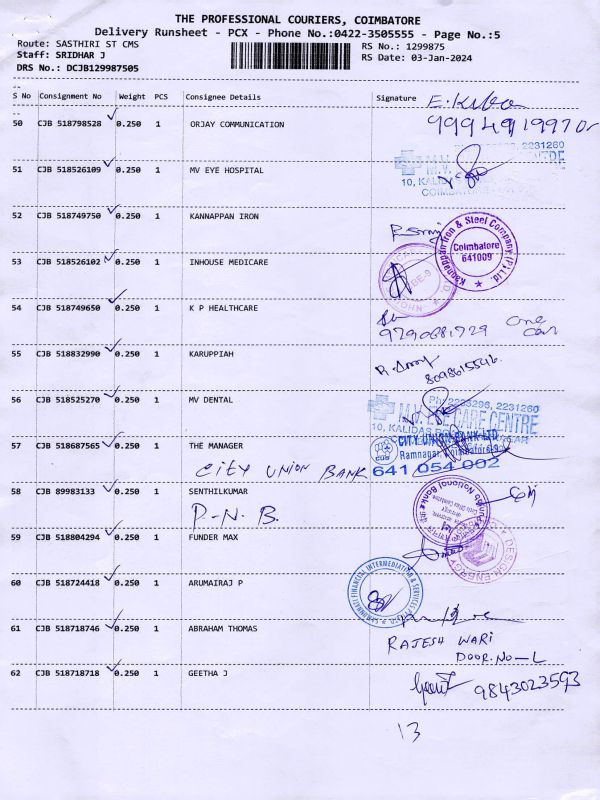 THE PROFESSIONAL COURIERS, COIMBATORE
Delivery Runsheet - PCX - Phone No.:0422-3505555 - Page No.:5
Route: SASTHIRI ST CMS
Staff: SRIDHAR J
DRS No.: DCJB129987505
RS No.: 1299875
RS Date: 03-Jan-2024
S No Consignment No Weight PCS Consignee Details Signature
50 CJB 518798528 0.250 1 ORJAY COMMUNICATION
2231260
51 CJB 518526109 0.250 1 MV EYE HOSPITAL
M.V.
10, KALIDAS
COIMBATORE
52 CJB 518749750 0.250 1 KANNAPPAN IRON
Kannappan Iron & Steel Company (P) Ltd
Coimbatore
641009
53 CJB 518526102 0.250 1 INHOUSE MEDICARE
54 CJB 518749650 0.250 1 K P HEALTHCARE
9790681729 one
55 CJB 518832990 0.250 1 KARUPPIAH
8098615546
56 CJB 518525270 0.250 1 MV DENTAL
Ph: 2233296, 2231260
M.V. EYE CARE CENTRE
10, KALIDAS
57 CJB 518687565 0.250 1 THE MANAGER
CITY UNION BANK LTD
Ramnagar, Coimbatore-9
641 054 002
CITY UNION BANK
58 CJB 89983133 0.250 1 SENTHILKUMAR
P.N.B.
Punjab National Bank
59 CJB 518804294 0.250 1 FUNDER MAX
DESIGN ENERGY
60 CJB 518724418 0.250 1 ARUMAIRAJ P
FINANCIAL INTERMEDIATION & SERVICES
61 CJB 518718746 0.250 1 ABRAHAM THOMAS
RAJESH WARI
DOOR.NO-L
62 CJB 518718718 0.250 1 GEETHA J
9843023593
13